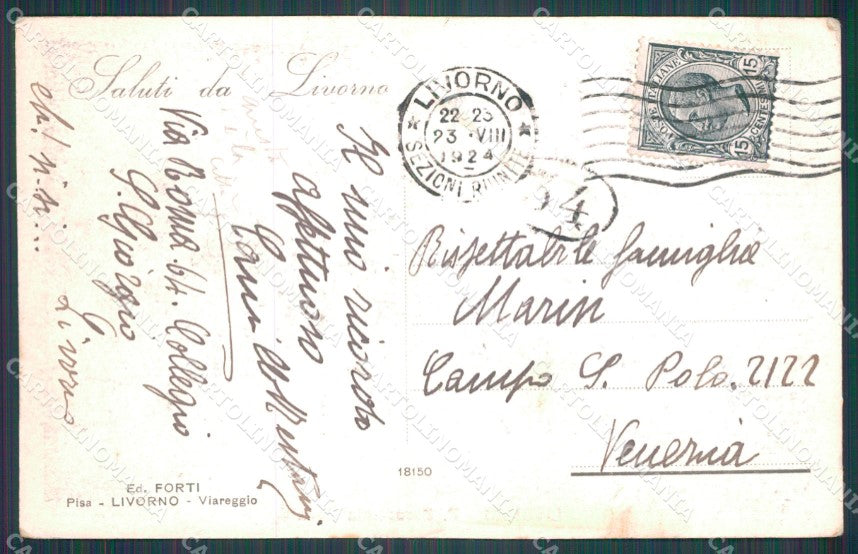 Saluti da Livorno
LIVORNO
22-23
23 · VIII
1924
SEZIONI RIUNITE
POSTE ITALIANE
CENTESIMI
15
15
4
Il mio ricordo
affettuoso
Via Roma 64. Collegio
S. Giorgio
Livorno
Rispettabile famiglia
Marin
Campo S. Polo. 2122
Venezia
18150
Ed. FORTI
Pisa - LIVORNO - Viareggio
CARTOLINOMANIA